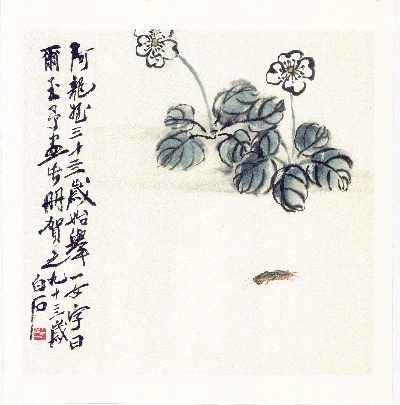 阿龍能三十三歲始舉一女字曰
爾玉予畫此冊賀之九十三歲
白石